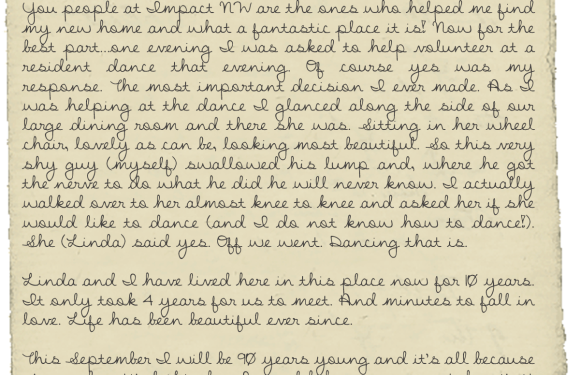 You people at Impact NW are the ones who helped me find
my new home and what a fantastic place it is! Now for the
best part...one evening I was asked to help volunteer at a
resident dance that evening. Of course yes was my
response. The most important decision I ever made. As I
was helping at the dance I glanced along the side of our
large dining room and there she was. Sitting in her wheel
chair, lovely as can be, looking most beautiful. So this very
shy guy (myself) swallowed his lump and, where he got
the nerve to do what he did he will never know. I actually
walked over to her almost knee to knee and asked her if she
would like to dance (and I do not know how to dance!).
She (Linda) said yes. Off we went. Dancing that is.
Linda and I have lived here in this place now for 10 years.
It only took 4 years for us to meet. And minutes to fall in
love. Life has been beautiful ever since.
This September I will be 90 years young and it's all because